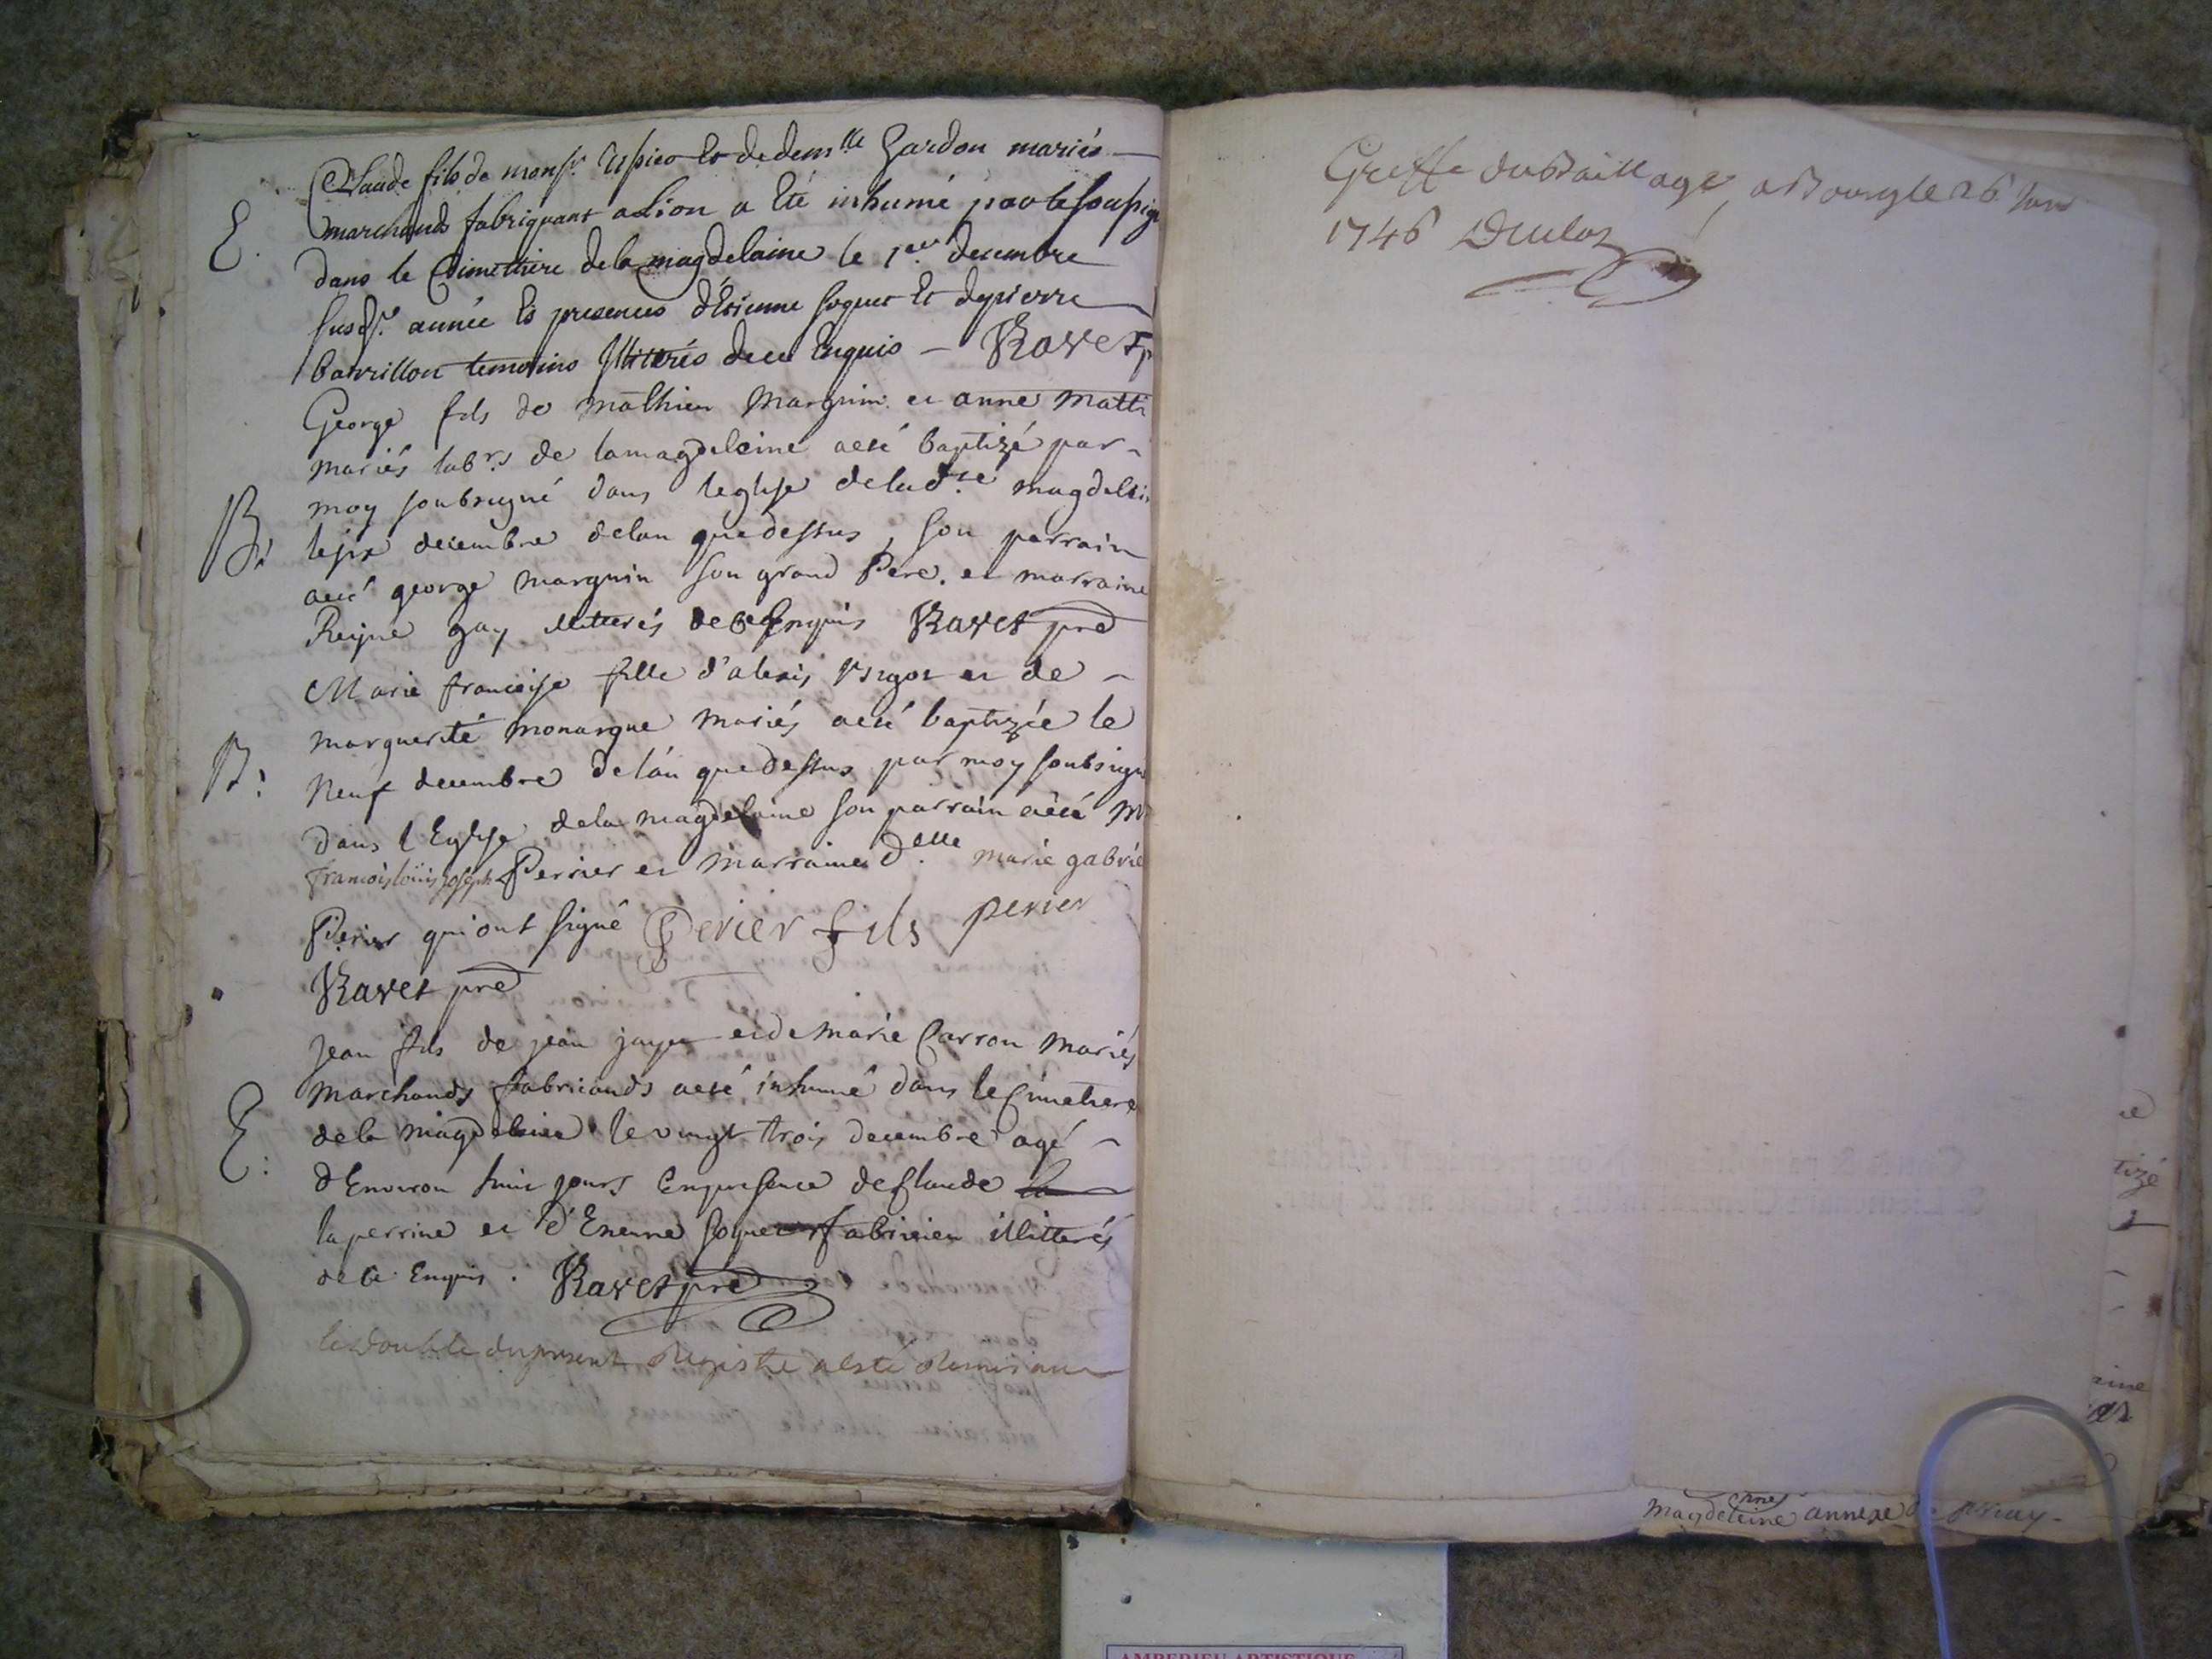 Claude fils de monsr. Espico et de dem.lle Gardon mariés
E. marchands fabriquant a Lion a Eté inhumé par le soussigné
dans le Cimethiere de la magdelaine le 1er decembre
susd. année Es presences d'Etienne soquet Et de pierre
barrillon temoins Illiterés de ce Enquis – Ravet p
George fils de mathieu Marguin et anne Matti
mariés labrs de lamagdeleine aeté baptizé par
B: moy soubsigné dans leglise de lad.te magdelei
le six decembre delan que dessus, son parrain
aeté george marguin son grand Pere. et marraine
Reyne gay illitterés de ce Enquis Ravet pre
Marie françoise fille d'alexis et de
marguerite monarque mariés aeté baptizée le
B: Neuf decembre de lan que dessus par moy soubsigné
dans l'Eglise dela magdelaine son parrain aeté M
françois loüis joseph Perrier et marraine d.elle marie gabrie
Perier qui ont signé Perier fils perier
Ravet pre
Jean fils de jean et de Marie Carron Mariés
marchands fabricands aeté inhumé dans le Cimetiere
E: de la magdeleine le vingt trois decembre agé
d'Environ huit jours En presence de Claude la
laperrine et d'Etienne soquet illitterés
de ce Enquis. Ravet pre
le double du present Registre a esté Remis au
Greffe du Baillage, a Bourg le 26 Jan
1746 Duclos
ne
tizé
aine
Magdeleine annexe de
AMBERIEU ARTISTIQUE